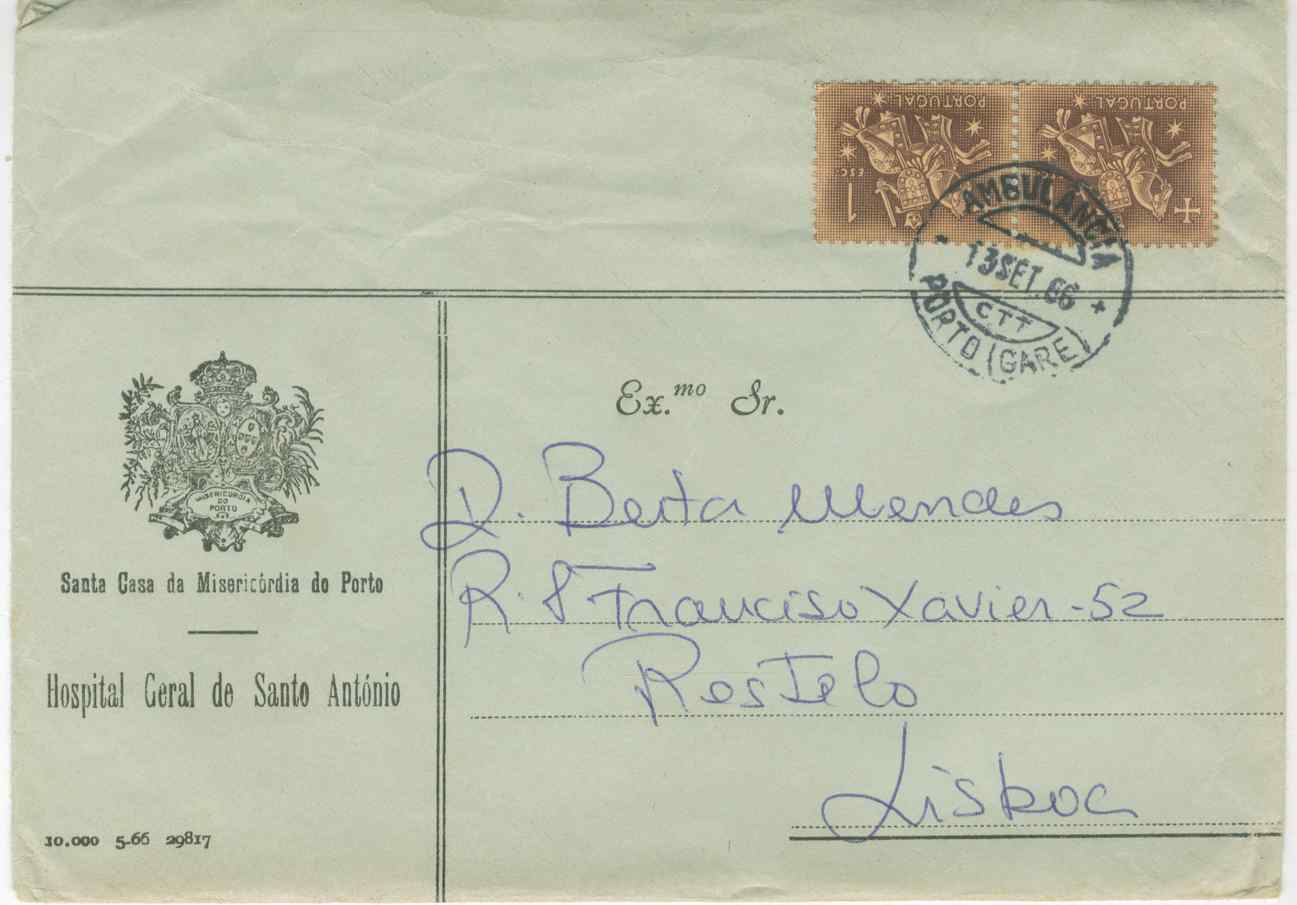 PORTUGAL
PORTUGAL
1
ESC.
AMBULÂNCIA
13 SET. 66
CTT
PORTO (GARE)
MISERICORDIA
DO
PORTO
Santa Casa da Misericórdia do Porto
Hospital Geral de Santo António
10.000 5-66 29817
Ex.mo Sr.
D. Berta Mendes
R. S Francisco Xavier-52
Restelo
Lisboa